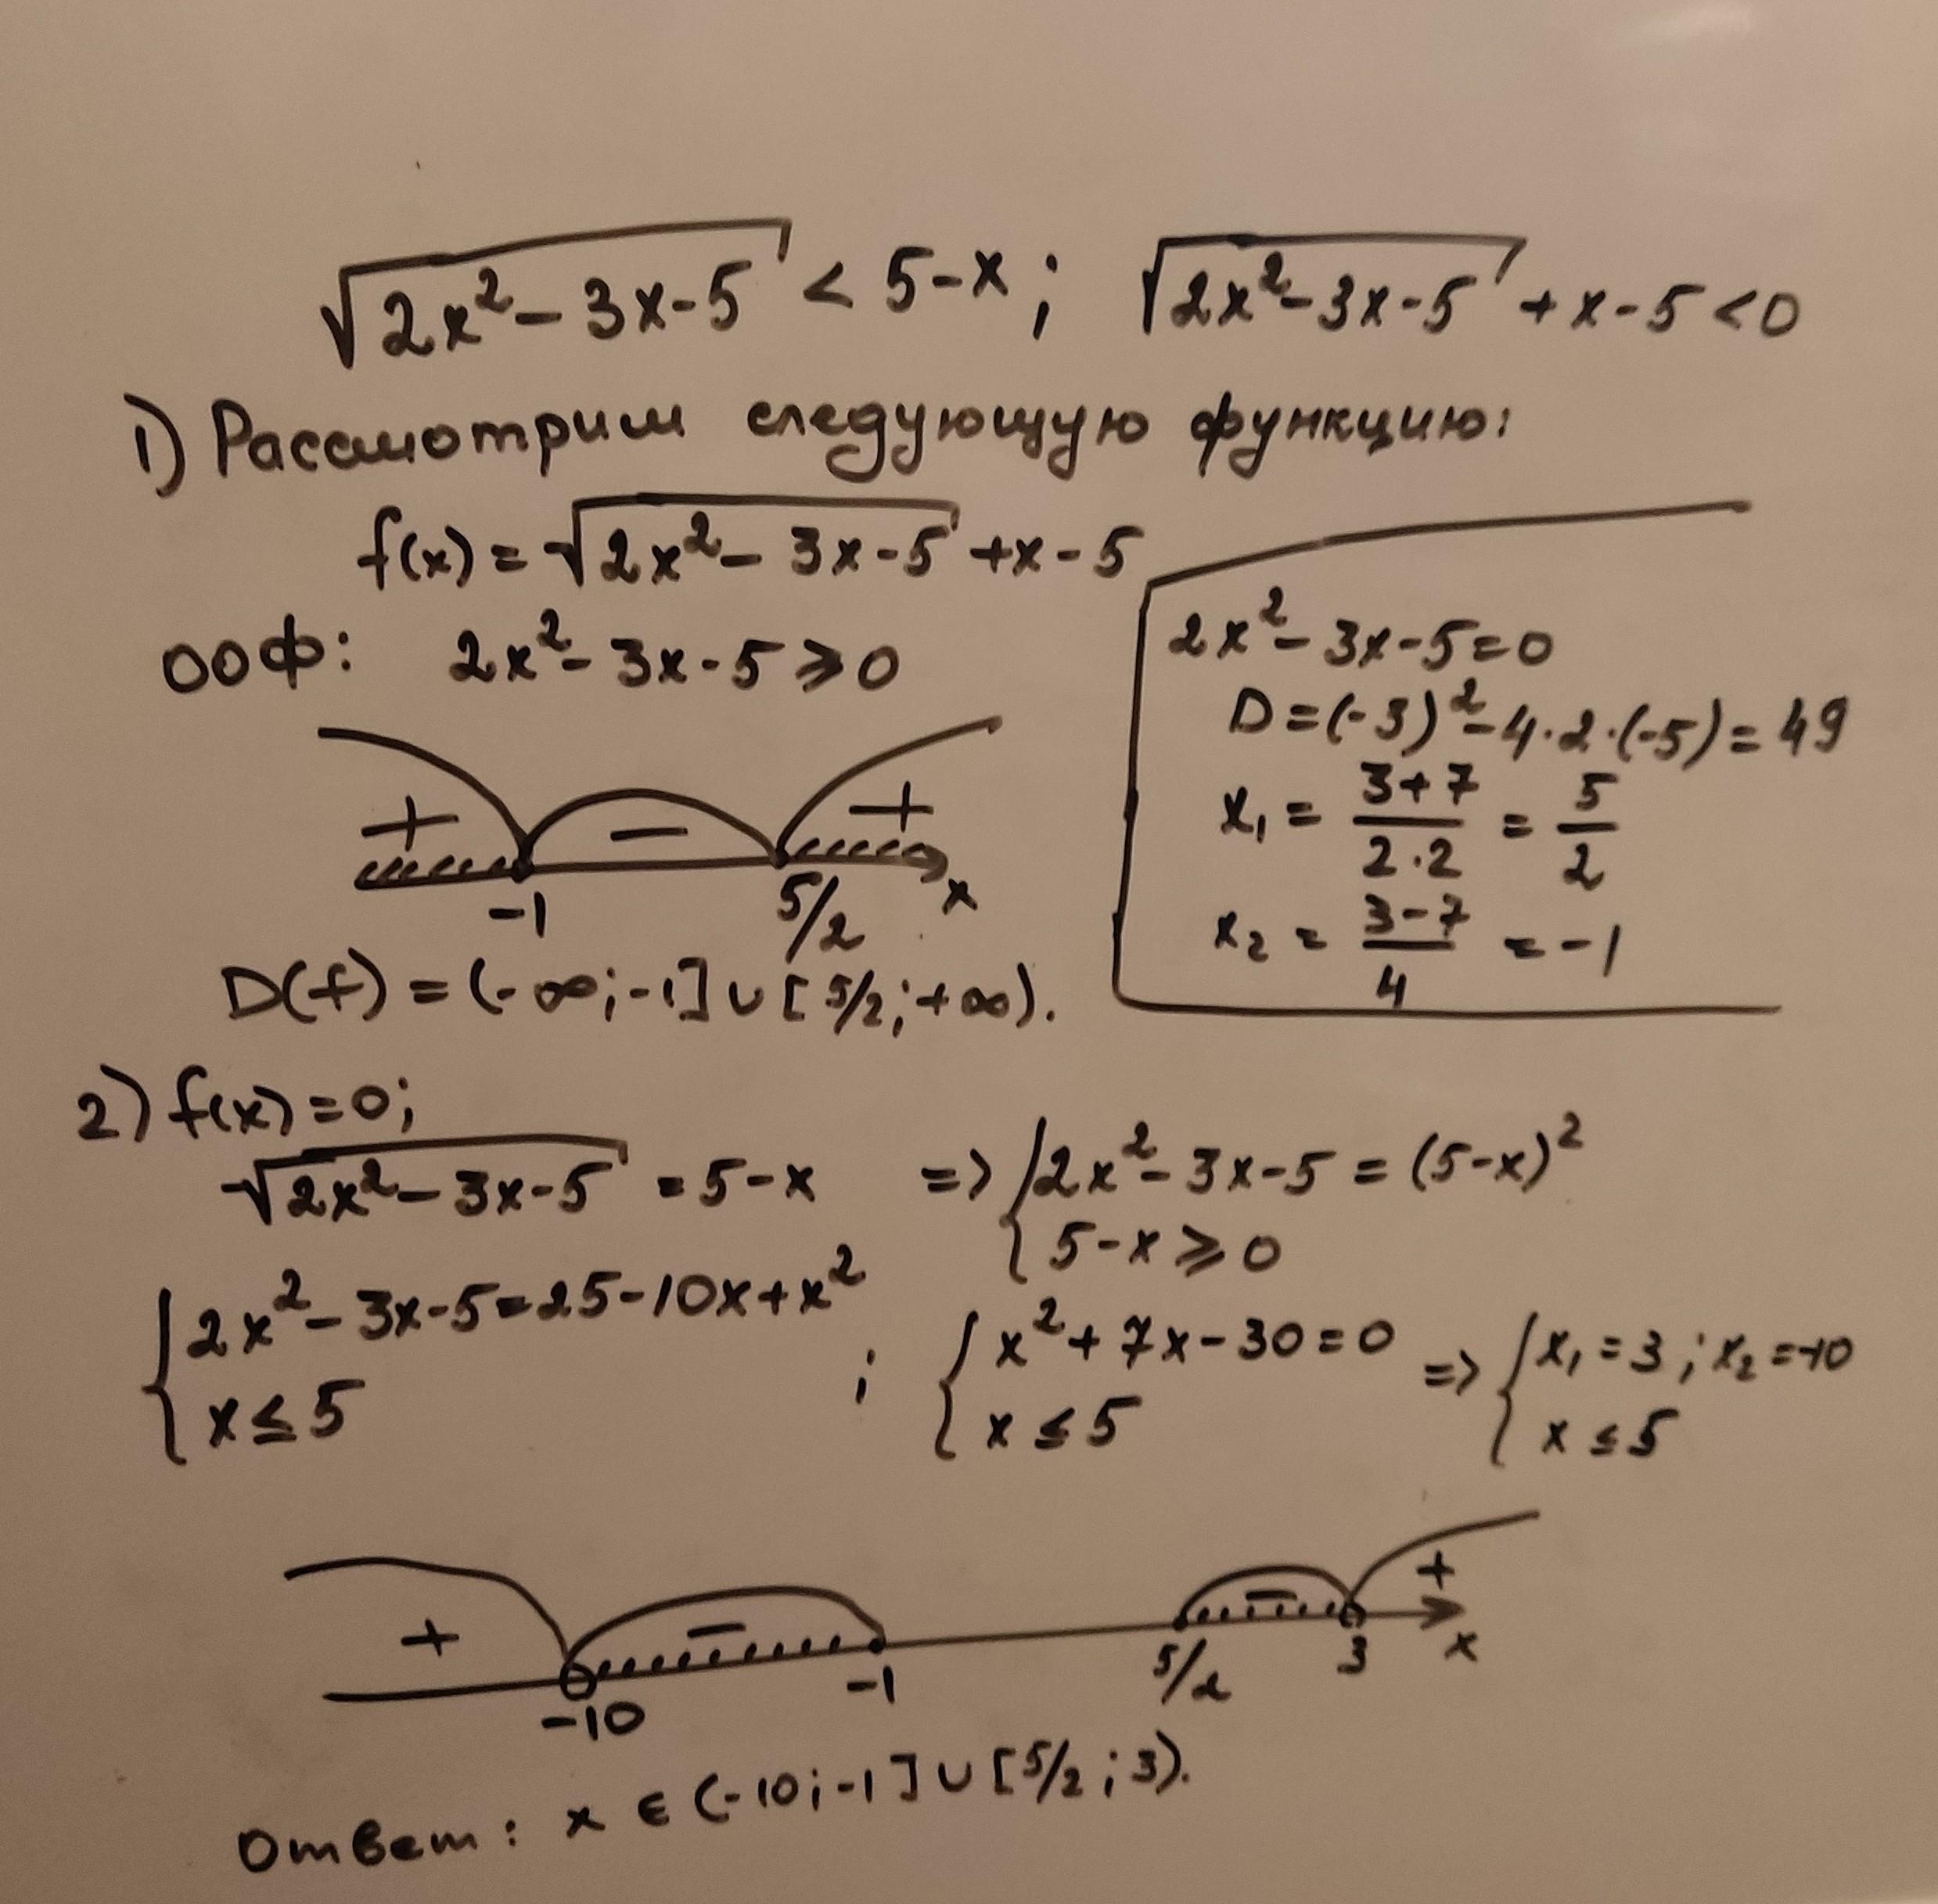 √(2x² - 3x - 5) < 5 - x ; √(2x² - 3x - 5) + x - 5 < 0
1) Рассмотрим следующую функцию:
f(x) = √(2x² - 3x - 5) + x - 5
ООФ: 2x² - 3x - 5 ⩾ 0
+ - +
-1 5/2 x
D(f) = (-∞; -1] ∪ [5/2; +∞).
2x² - 3x - 5 = 0
D = (-3)² - 4·2·(-5) = 49
x₁ = (3+7)/(2·2) = 5/2
x₂ = (3-7)/4 = -1
2) f(x) = 0;
√(2x² - 3x - 5) = 5 - x => { 2x² - 3x - 5 = (5-x)²
5 - x ⩾ 0
{ 2x² - 3x - 5 = 25 - 10x + x² ; { x² + 7x - 30 = 0 => { x₁ = 3 ; x₂ = -10
x ≤ 5 x ≤ 5 x ≤ 5
+ - - +
-10 -1 5/2 3 x
Ответ: x ∈ (-10; -1] ∪ [5/2; 3).